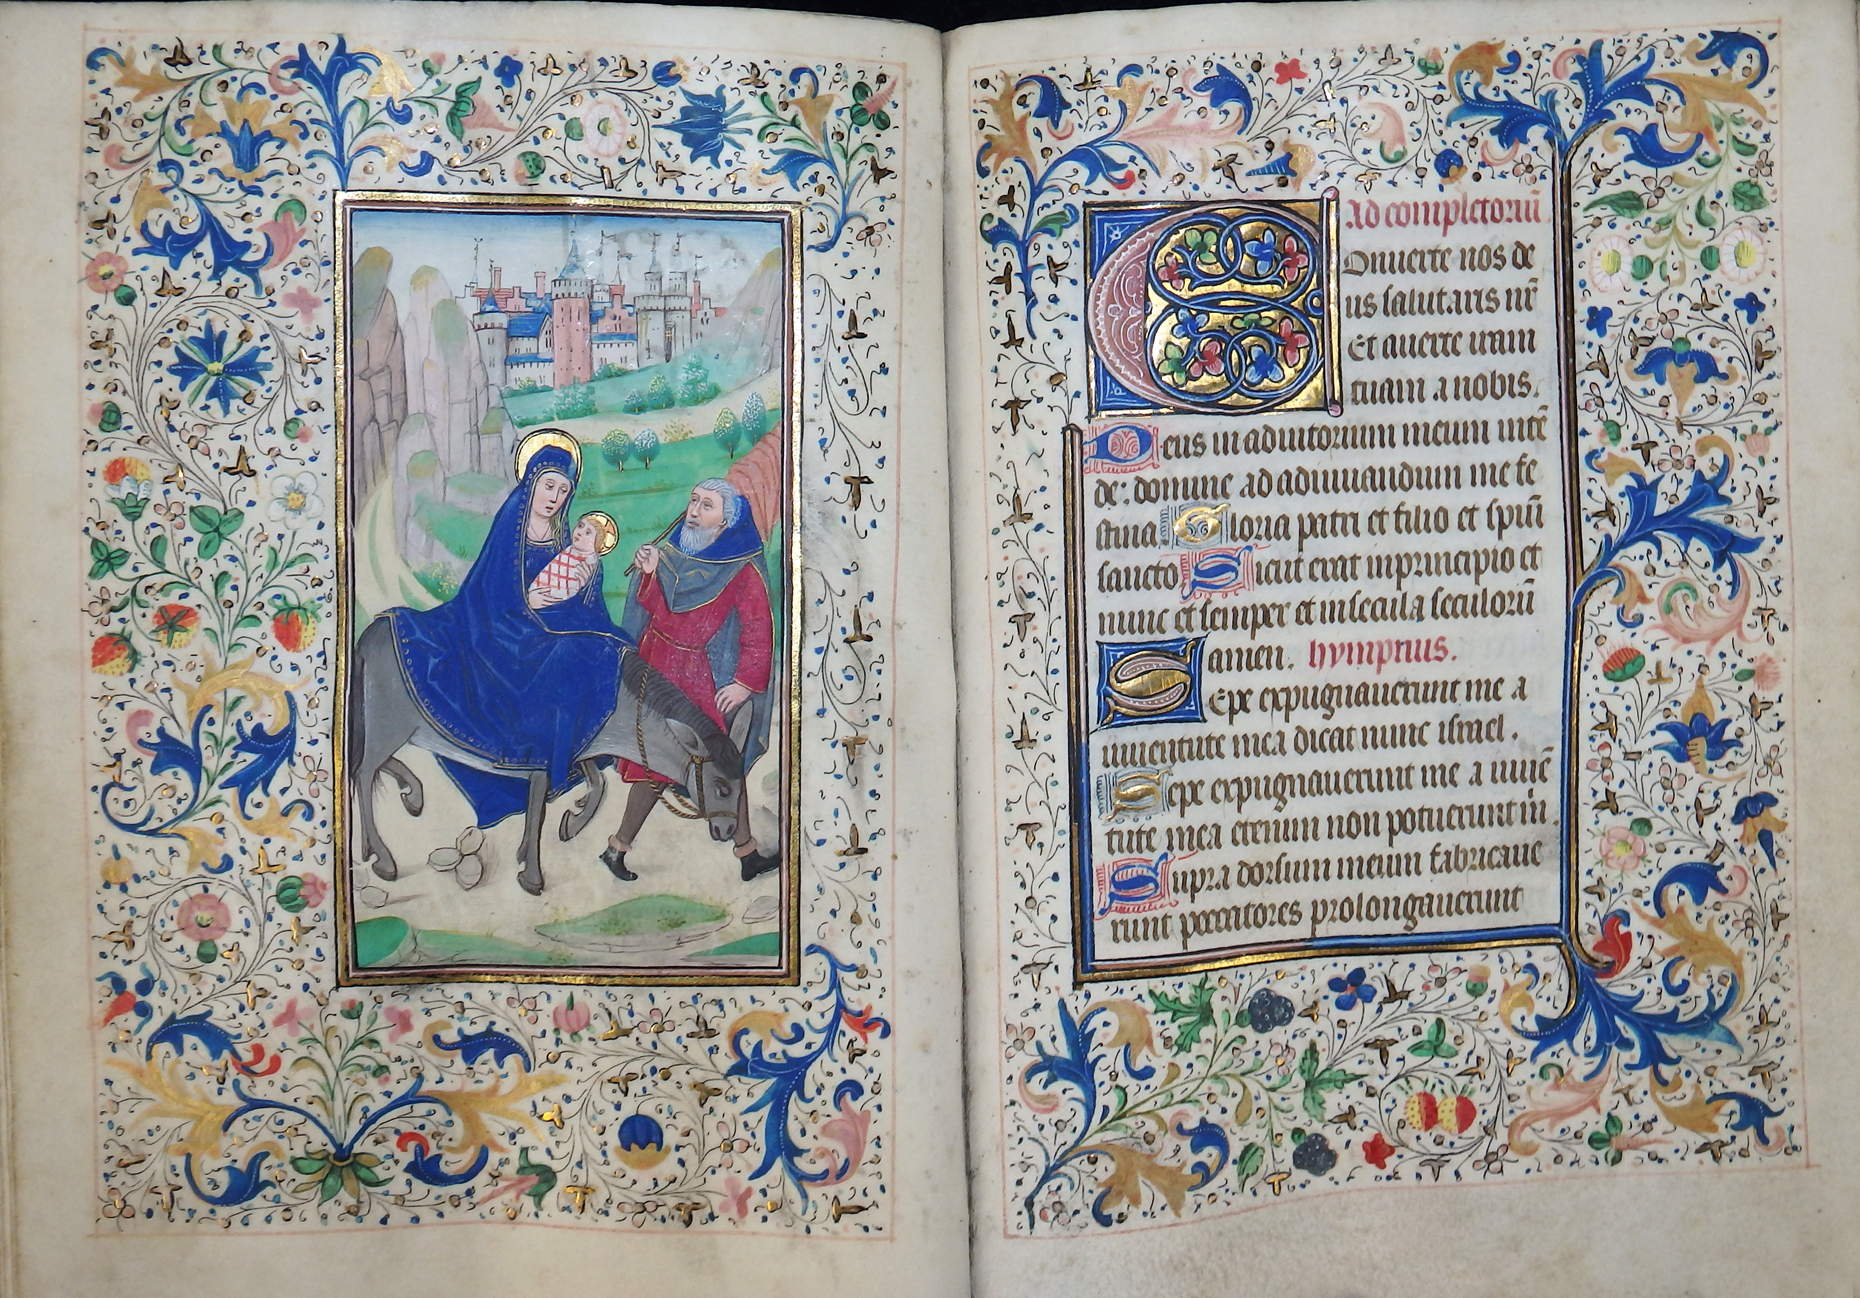 Ad completoriū
Conuerte nos de
us salutaris nr̄
Et auerte iram
tuam a nobis.
Deus in adiutorium meum intē
de: domine ad adiuuandum me fe
stina Gloria patri et filio et spūi
sancto Sicut erat in principio et
nunc et semper et in secula seculorū
amen. hymprius.
Sepe expugnauerunt me a
iuuentute mea dicat nunc israel.
Sepe expugnauerunt me a iuuē
tute mea etenim non potuerunt m̄
Supra dorsum meum fabricaue
runt peccatores prolongauerunt